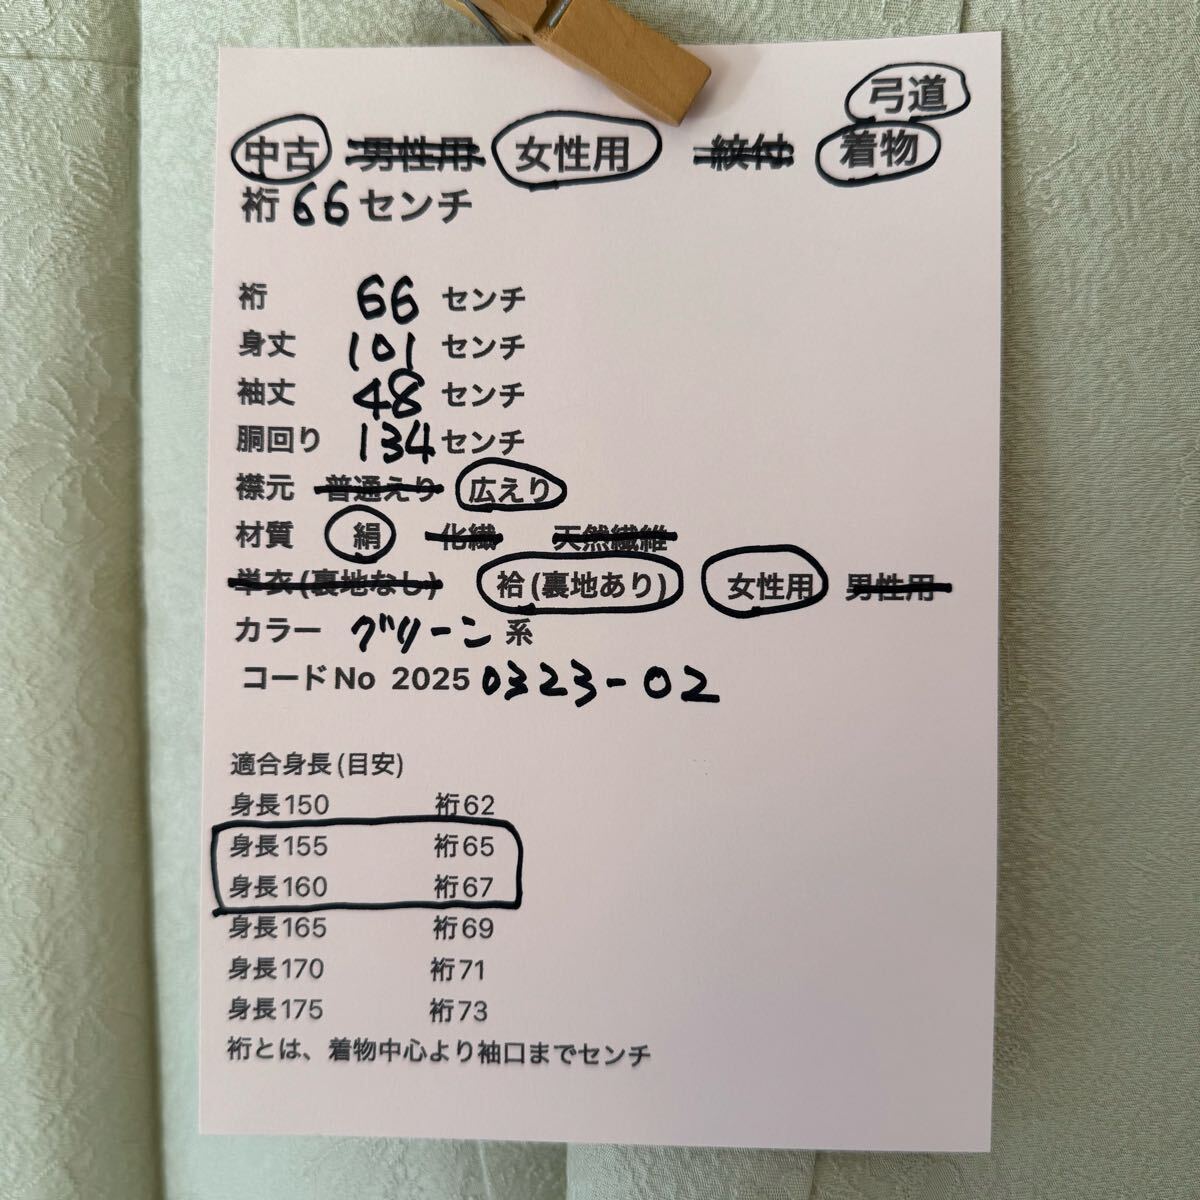 弓道
中古 男性用 女性用 紋付 着物
裄 66 センチ
裄 66 センチ
身丈 101 センチ
袖丈 48 センチ
胴回り 134 センチ
襟元 普通えり 広えり
材質 絹 化繊 天然繊維
単衣(裏地なし) 袷(裏地あり) 女性用 男性用
カラー グリーン 系
コードNo 2025 0323-02
適合身長(目安)
身長150 裄62
身長155 裄65
身長160 裄67
身長165 裄69
身長170 裄71
身長175 裄73
裄とは、着物中心より袖口までセンチ